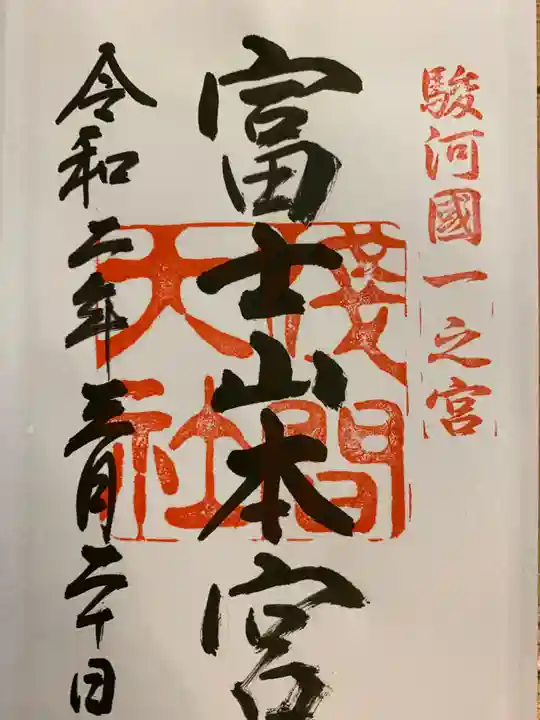 駿河國一之宮
富士山本宮
浅間
大社
令和二年三月二十日